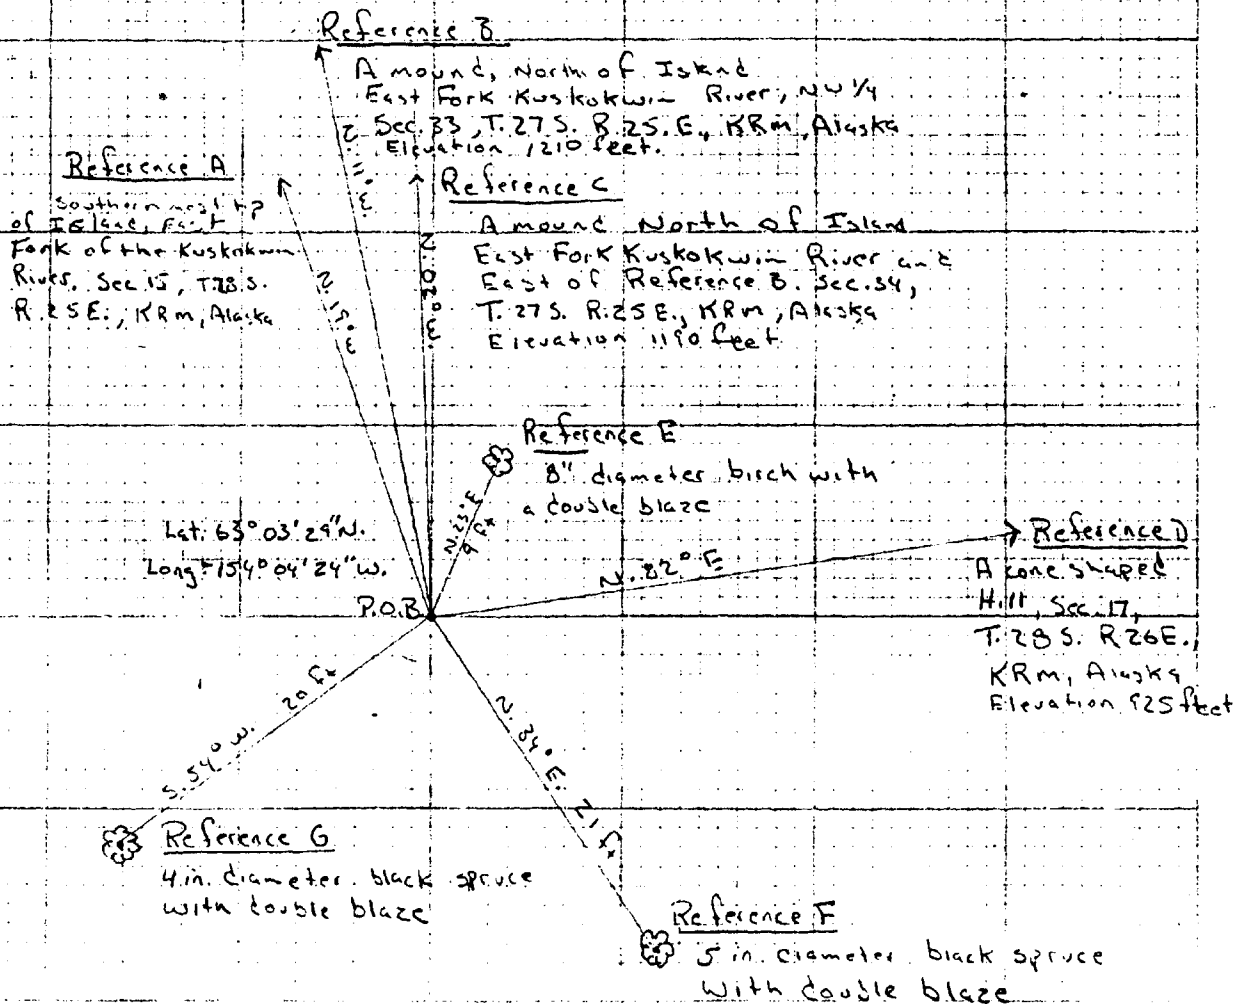 Reference B
A mound, North of Island
East Fork Kuskokwin River, NW 1/4
Sec. 33, T. 27 S. R. 25. E., KRM, Alaska
Elevation 1210 feet.
N. 11° W.
Reference A
Southern most tip
of Island, East
Fork of the Kuskokwin
River, Sec 15, T28 S.
R. 25 E., KRM, Alaska
N. 19° W.
N. 02° W.
Reference C
A mound North of Island
East Fork Kuskokwin River and
East of Reference B. Sec. 34,
T. 27 S. R. 25 E., KRM, Alaska
Elevation 1190 feet
Reference E
8" diameter birch with
a double blaze
N. 23° E
9 ft
Lat. 63° 03' 29" N.
Long. 154° 04' 24" W.
P.O.B.
N. 82° E
Reference D
A cone shaped
Hill, Sec. 17,
T. 28 S. R 26 E.,
KRM, Alaska
Elevation 925 feet
S. 54° W. 20 ft
N. 34° E. 21 ft
Reference G
4 in. diameter black spruce
with double blaze
Reference F
5 in. diameter black spruce
With double blaze